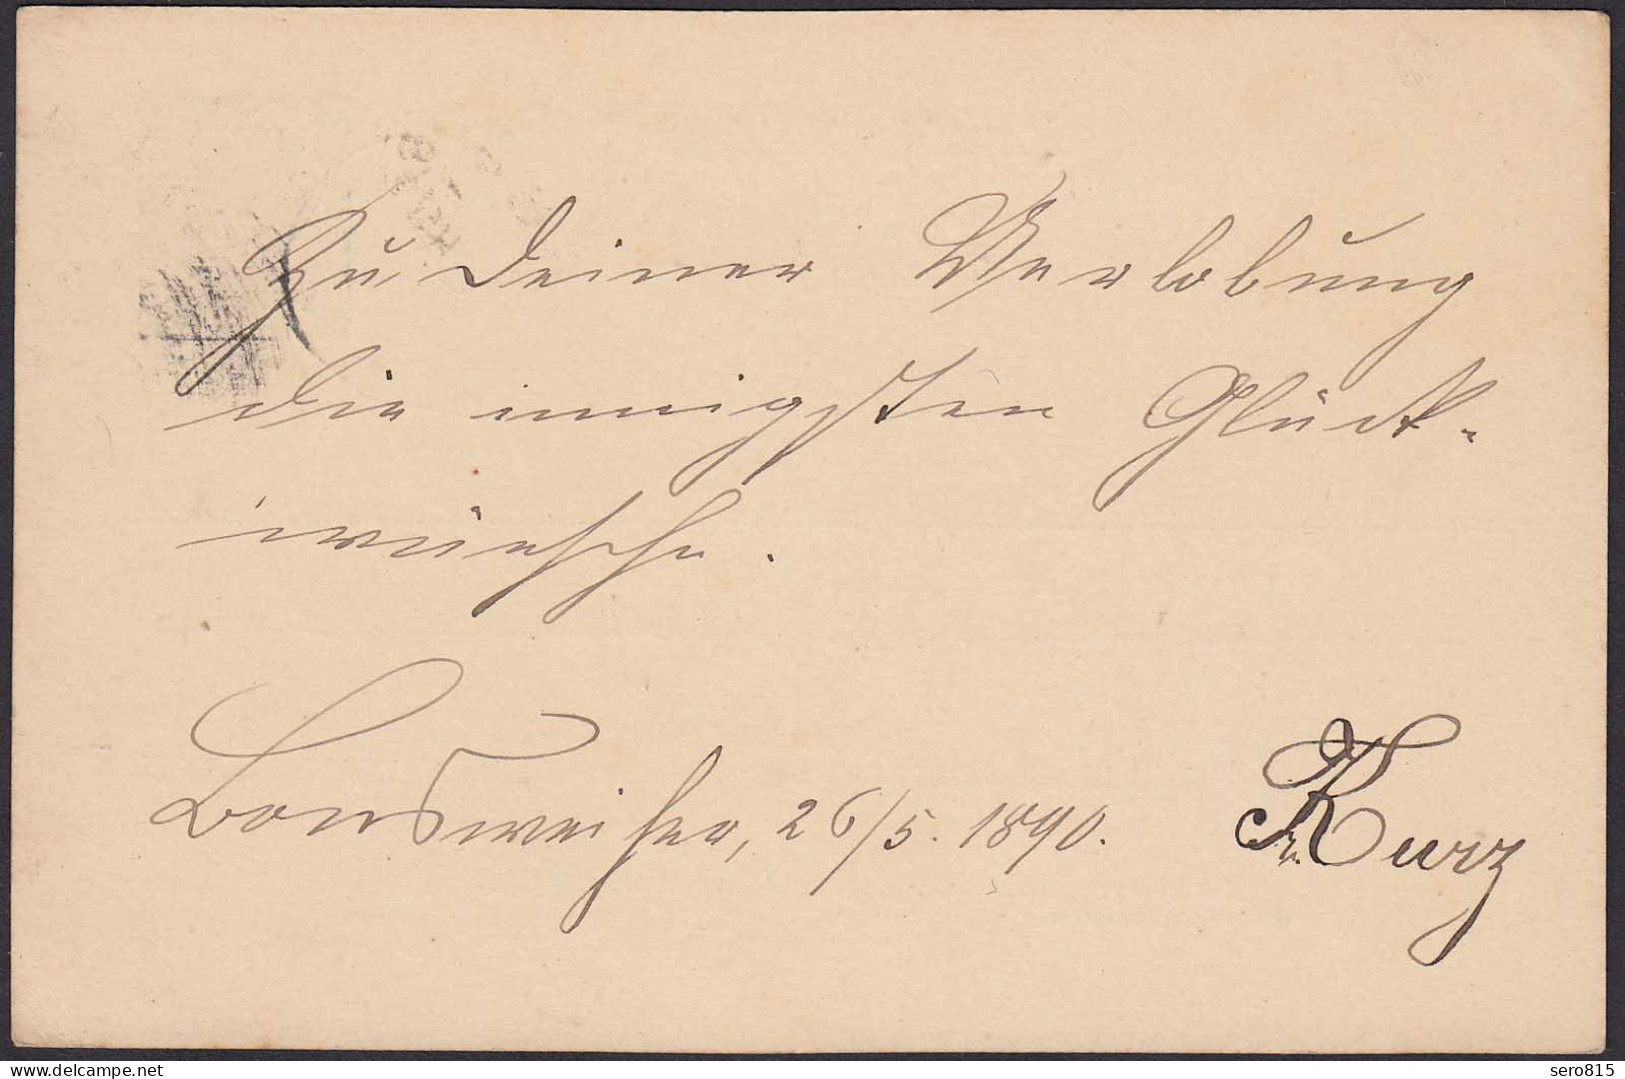 Zu Deiner Verlobung
die innigsten Glück-
wünsche.
Bonsweiher, 26/5. 1890.
Kurz
Delcampe.net
sero815